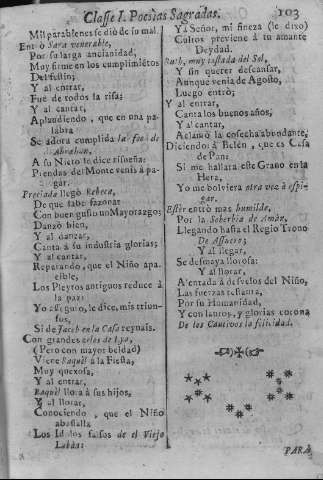 Classe I. Poesias Sagradas.
103
Mil parabienes se diò de su mal.
Entrò Sara venerable,
Por su larga ancianidad,
Muy firme en los cumplimiẽtos
Del festin;
Y al entrar,
Fue de todos la risa;
Y al cantar,
Aplaudiendo, que en una pa-
labra
Se adora cumplida la fee de
Abrahan,
A su Nieto le dice risueña:
Prendas del Monte venis à pa-
gar.
Preciada llegò Rebeca,
De que sabe sazonar
Con buen gusto un Mayorazgo;
Danzò bien,
Y al danzar,
Canta à su industria glorias;
Y al cantar,
Reparando, que el Niño apa-
cible,
Los Pleytos antiguos reduce à
la paz;
Yo asseguro, le dice, mis triun-
fos,
Si de Jacob en la Casa reynais.
Con grandes zelos de Lya,
(Pero con mayor beldad)
Viene Raquèl à la Fiesta,
Muy quexosa,
Y al entrar,
Raquèl llora à sus hijos,
Y al llorar,
Conociendo, que el Niño
abassalla
Los Idolos falsos de el Viejo
Labàn:
Ya Señor, mi fineza (le dixo)
Cultos previene à tu amante
Deydad.
Ruth, muy tostada del Sol,
Y sin querer descansar,
Aunque venia de Agosto,
Luego entrò;
Y al entrar,
Canta los buenos años,
Y al cantar,
Aclamò la cosecha abundante,
Diciendo: à Belèn, que es Casa
de Pan:
Si me hallara este Grano en la
Hera,
Yo me bolviera otra vez à espi-
gar.
Estèr entrò mas humilde,
Por la Soberbia de Amàn,
Llegando hasta el Regio Trono
De Assuero;
Y al llegar,
Se desmaya llorosa:
Y al llorar,
Alentada à desvelos del Niño,
Las fuerzas restaura,
Por su Humanidad,
Y con lauros, y glorias corona
De los Cautivos la felicidad.
PARA